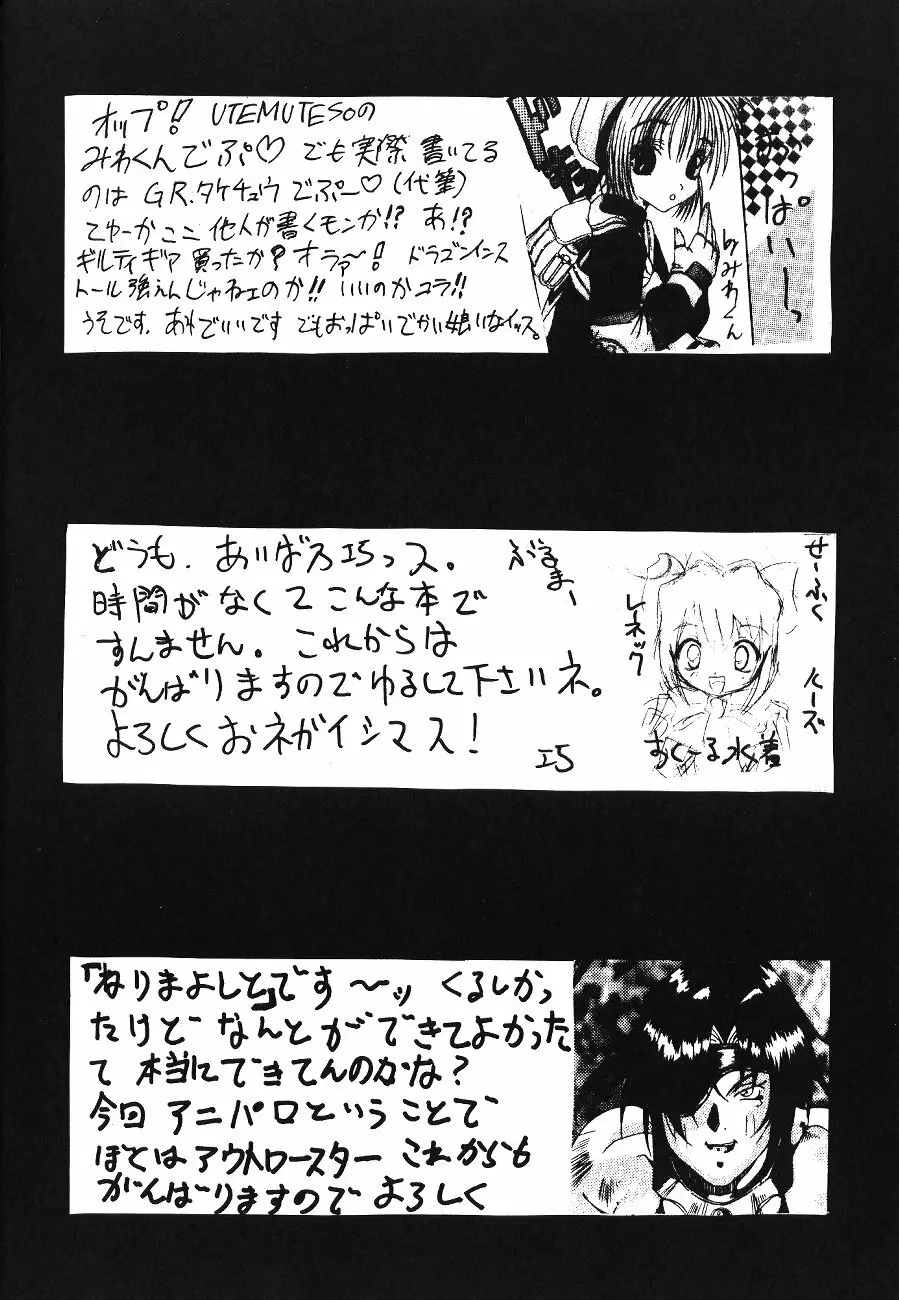 オップ! UTEMUTESOの
みわくんでぷ♡ でも実際 書いてる
のは G.R.タケチュウ でぷー♡(代筆)
てゆーか ここ 他人が書くモンか!? あ!?
ギルティギア 買ったか? オラァ〜! ドラゴンインス
トール強えんじゃねェのか!! いいのかコラ!!
うそです. あれでいいです でもおっぱいでかい娘いなイッス。
ぱい〜っ
byみわくん
どうも. あいばスエ5っス。
時間がなくて こんな本で
すんません。 これからは
がんばりますのでゆるして下さいネ。
よろしくおネガイシマス!
エ5
ぶるまー
せーふく
レーネック
ルーズ
すくーる水着
「ねりまよしと」です 〜ッ くるしかっ
たけど なんとか できてよかった
て 本当にできてんのかな?
今回 アニパロということで
ぼくは アウトロースター これからも
がんばりますので よろしく